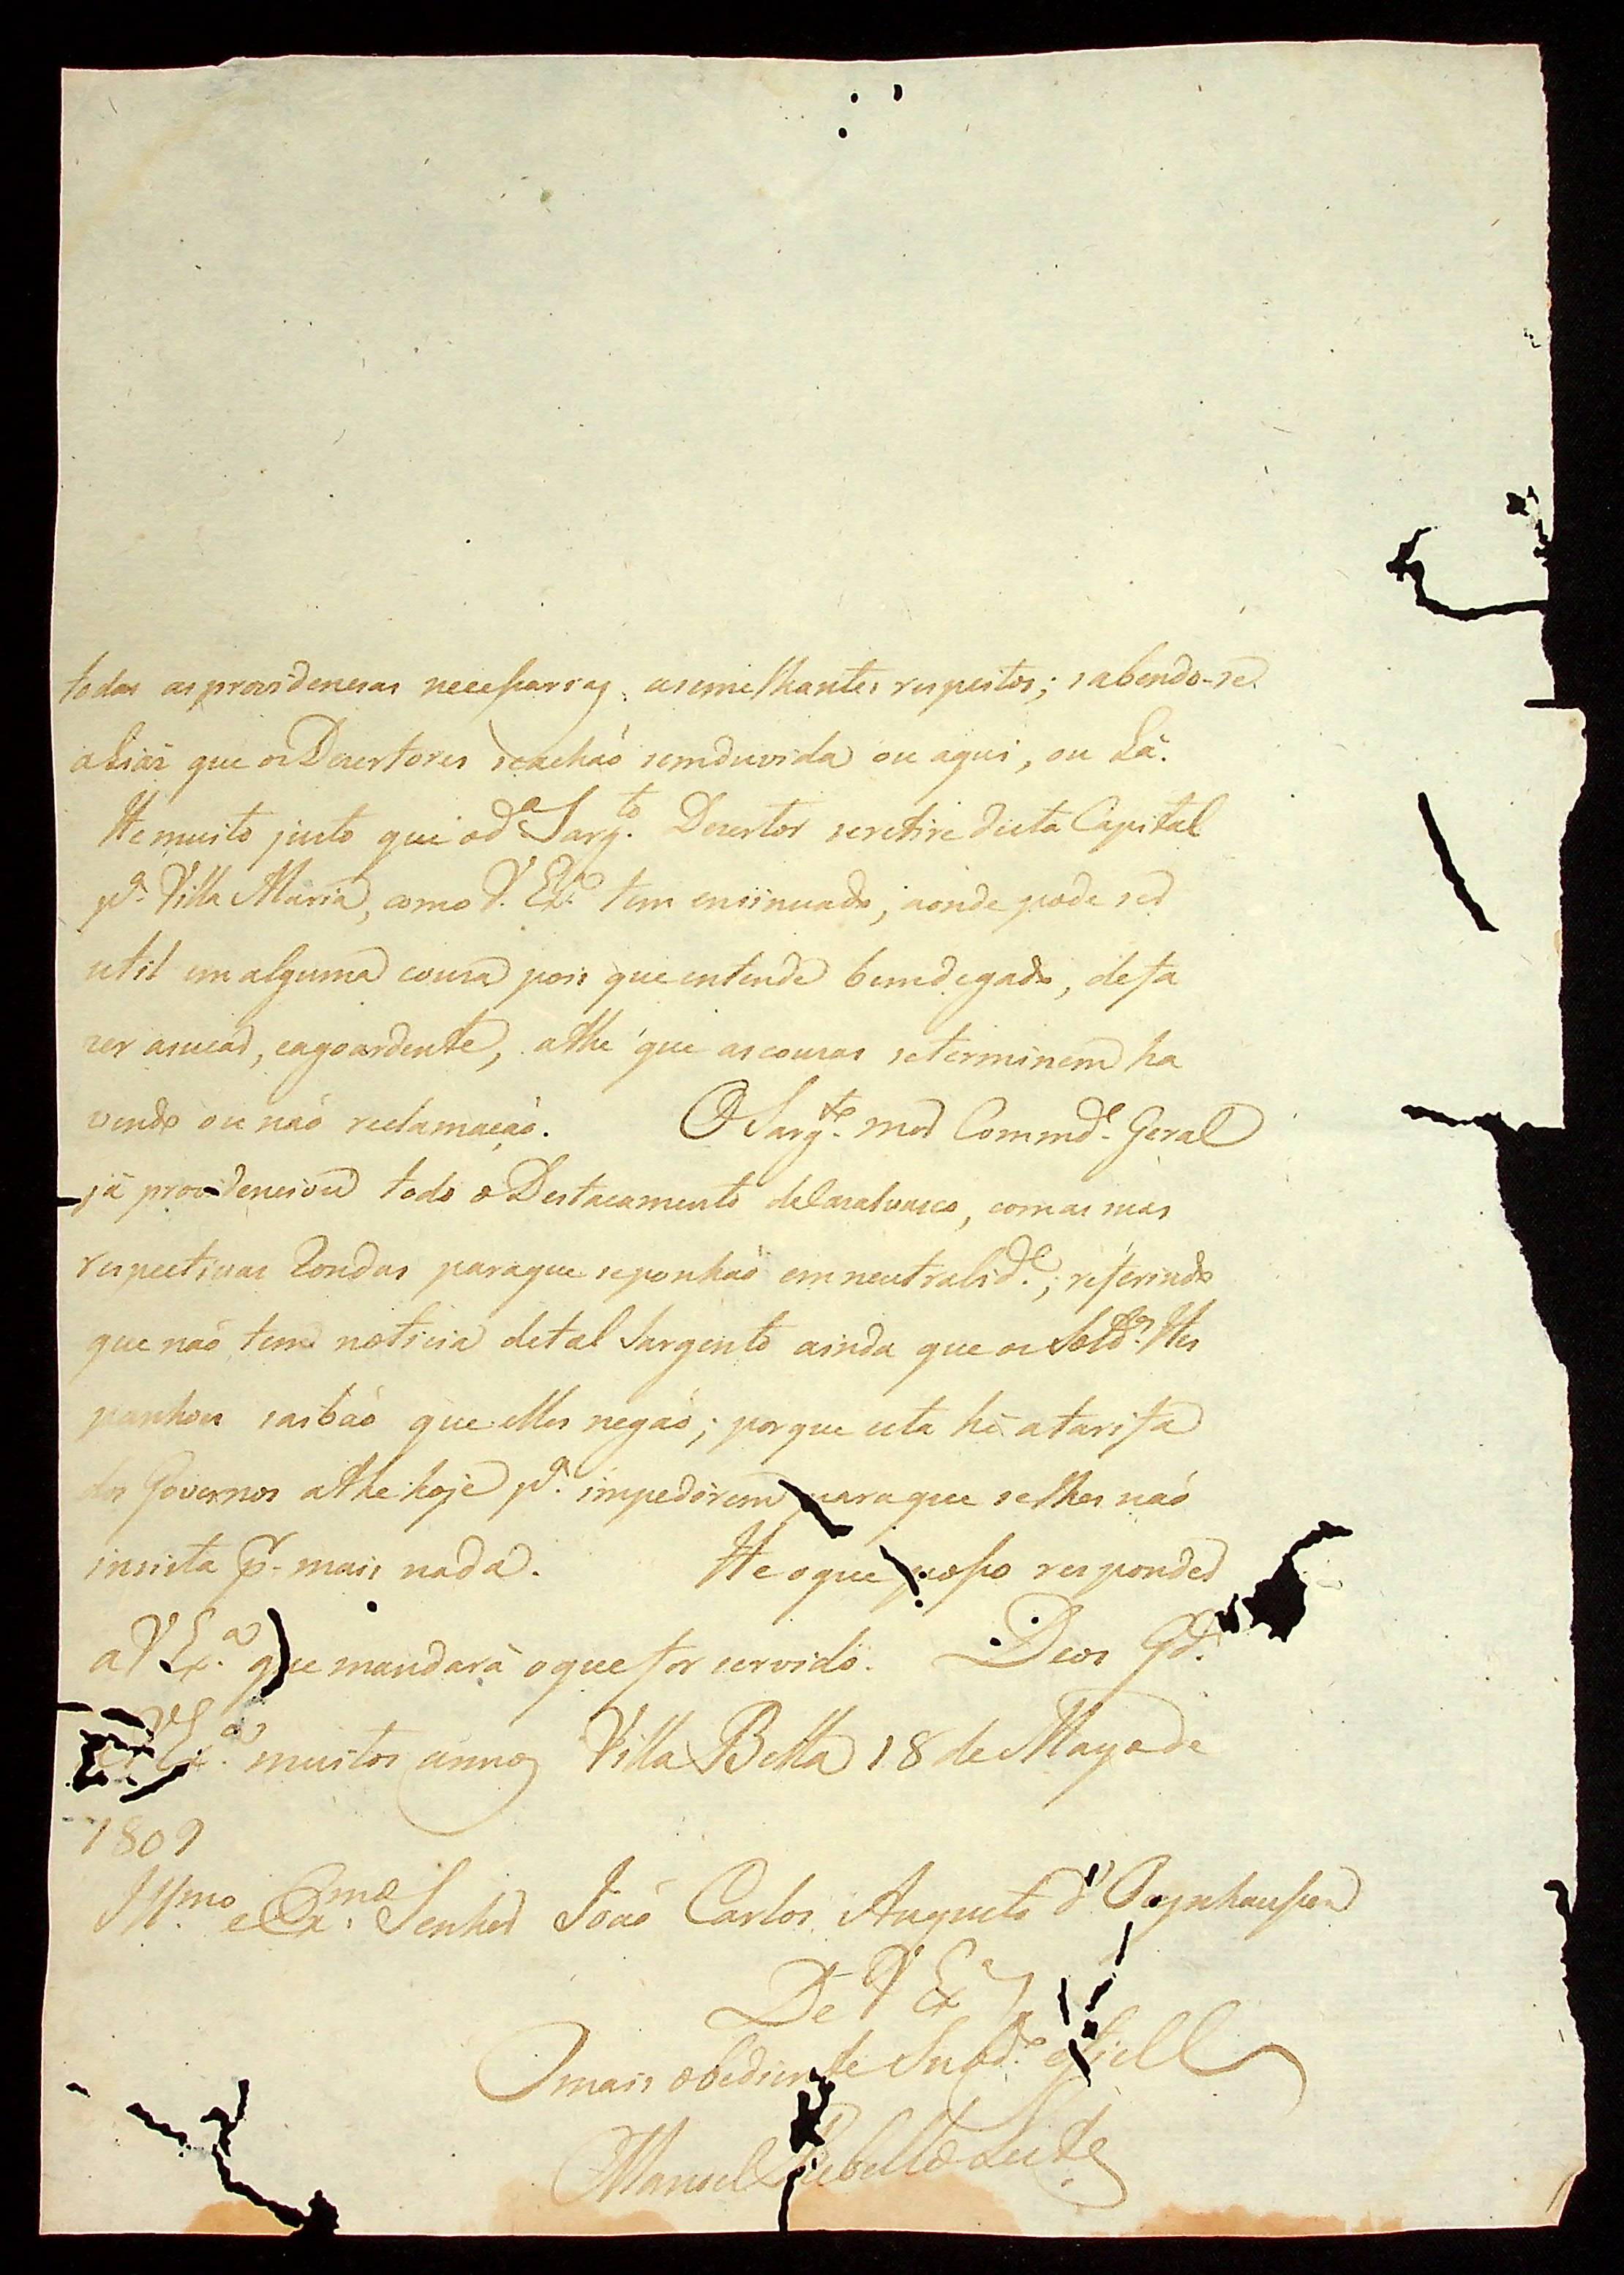 todas as providencias necessarias asemelhantes respeitos; sabendo-se
aliás que os Dezertores seachaõ semduvida ou aqui, ou Lá.
He muito justo que od.º Sarg.to Dezertor seretire desta Capital
p.ª Villa Maria, como V. Ex.ª tem ensinuado, aonde pode ser
util em alguma couza pois que entende bemdegado, defa
zer asucar, eagoardente, athé que ascouzas seterminem ha
vendo ou naõ reclamaçaõ. O Sarg.to mor Commd.e Geral
já providenciou todo o Destacamento de Casalvasco, comas suas
respectivas Rondas paraque seponhaõ emneutralid.e; referindo
que naõ tem noticia detal Sargento ainda que os Sold.os Hes
panhoes saibaõ que elles negaõ; porque esta hé atarifa
dos Governos athe hoje p.ª impedirem paraque selhes naõ
insista p.r mais nada. He oque posso responder
a V Ex.ª que mandará oquefor servido. Deos G.de
a V Ex.ª muitos annos Villa Bella 18 de Mayo de
1809
Ill.mo e Ex.mo Senhor Joaõ Carlos Augusto d'Oeynhaussen
De V Ex.ª
Omais obediente Subd.º efiell
Manoel Rebello Leite